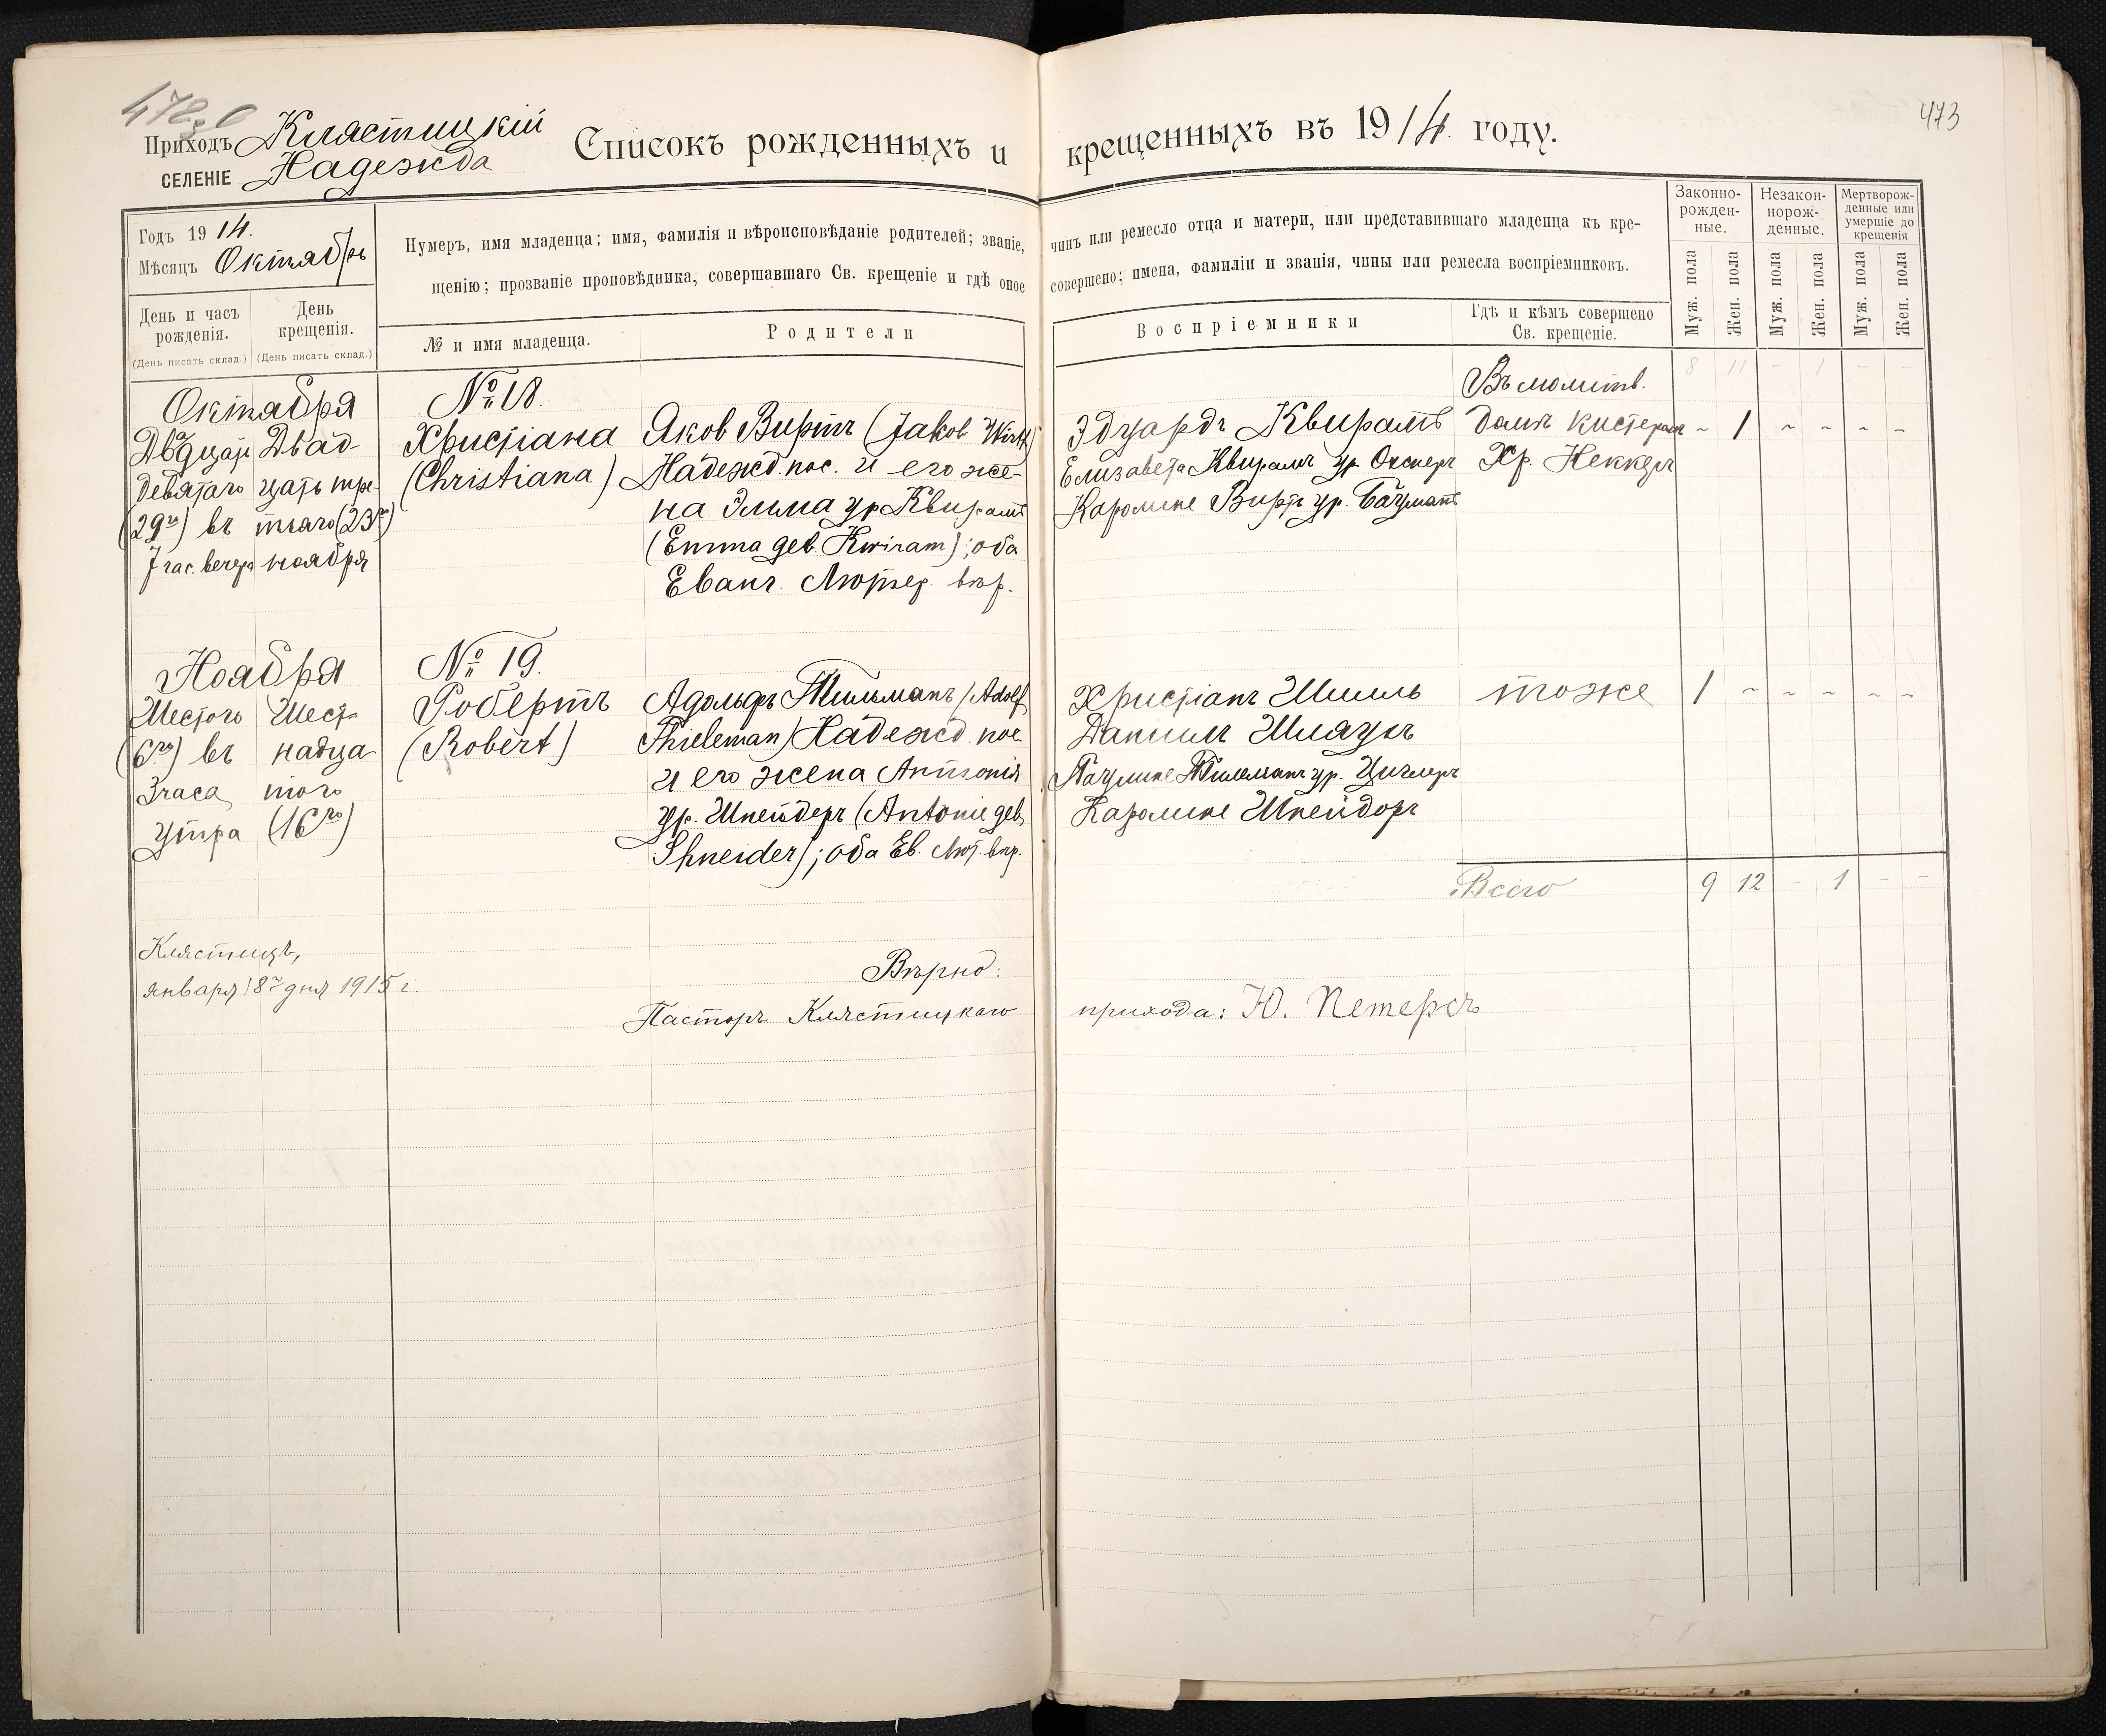 473
Приходъ Клястицкій
селеніе Надежда
Списокъ рожденныхъ и крещенныхъ въ 1914 году.
Годъ 1914.
Мѣсяцъ Октябрь
Нумеръ, имя младенца; имя, фамилія и вѣроисповѣданіе родителей; званіе, чинъ или ремесло отца и матери, или представившаго младенца къ кре-
щенію; прозваніе проповѣдника, совершавшаго Св. крещеніе и гдѣ оное совершено; имена, фамиліи и званія, чины или ремесла воспріемниковъ.
Законно-
рожден-
ные.
Незакон-
норож-
денные.
Мертворож-
денные или
умершіе до
крещенія
Муж. пола
Жен. пола
Муж. пола
Жен. пола
Муж. пола
Жен. пола
День и часъ
рожденія.
(День писать склад.)
День
крещенія.
(День писать склад.)
№ и имя младенца.
Родители
Воспріемники
Гдѣ и кѣмъ совершено
Св. крещеніе.
8 11 - 1 - -
Октября
Двадцать
девятаго
(29го) въ
7 час. вечера
Двад-
цать тре-
тьяго (23го)
ноября
№ 18.
Христіана
(Christiana)
Яков Виртъ (Jakob Wirth)
Надежд. пос. и его же-
на Эмма ур. Квирамъ
(Emma geb. Kwiram); оба
Еванг. Лютер. вѣр.
Эдуардъ Квирамъ
Елизавета Квирамъ ур.
Каролине Виртъ ур. Бауманъ
Въ молитв.
домѣ кистеромъ
Хр. Неккеръ
- 1 - - - -
Ноября
Шестого
(6го) въ
3 часа
утра
Шест-
надца-
того
(16го)
№ 19.
Робертъ
(Robert)
Адольфъ Тильманъ (Adolf
Thieleman) Надежд. пос.
и его жена Антонія
ур. Шнейдеръ (Antonie geb.
Shneider); оба Ев. Лют. вѣр.
Христіанъ Шилль
Даніилъ Шлаухъ
Паулине Тилеманъ ур. Циглеръ
Каролине Шнейдоръ
тоже
1 - - - - -
Всего
9 12 - 1 - -
Клястицъ,
января 18го дня 1915 г.
Вѣрно:
Пасторъ Клястицкаго прихода: Ю. Петерсъ